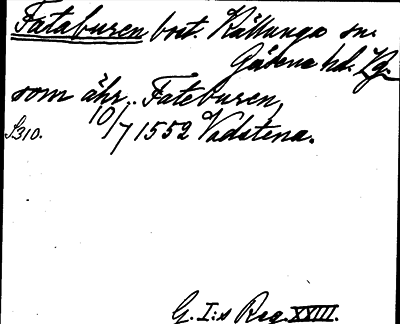 Fataburen bost. Källunga sn.
Gäsene hd. Vg.
som ähr.. Fateburen,
10/7 1552 Vadstena.
S310.
G. I:s Reg. XXIII.